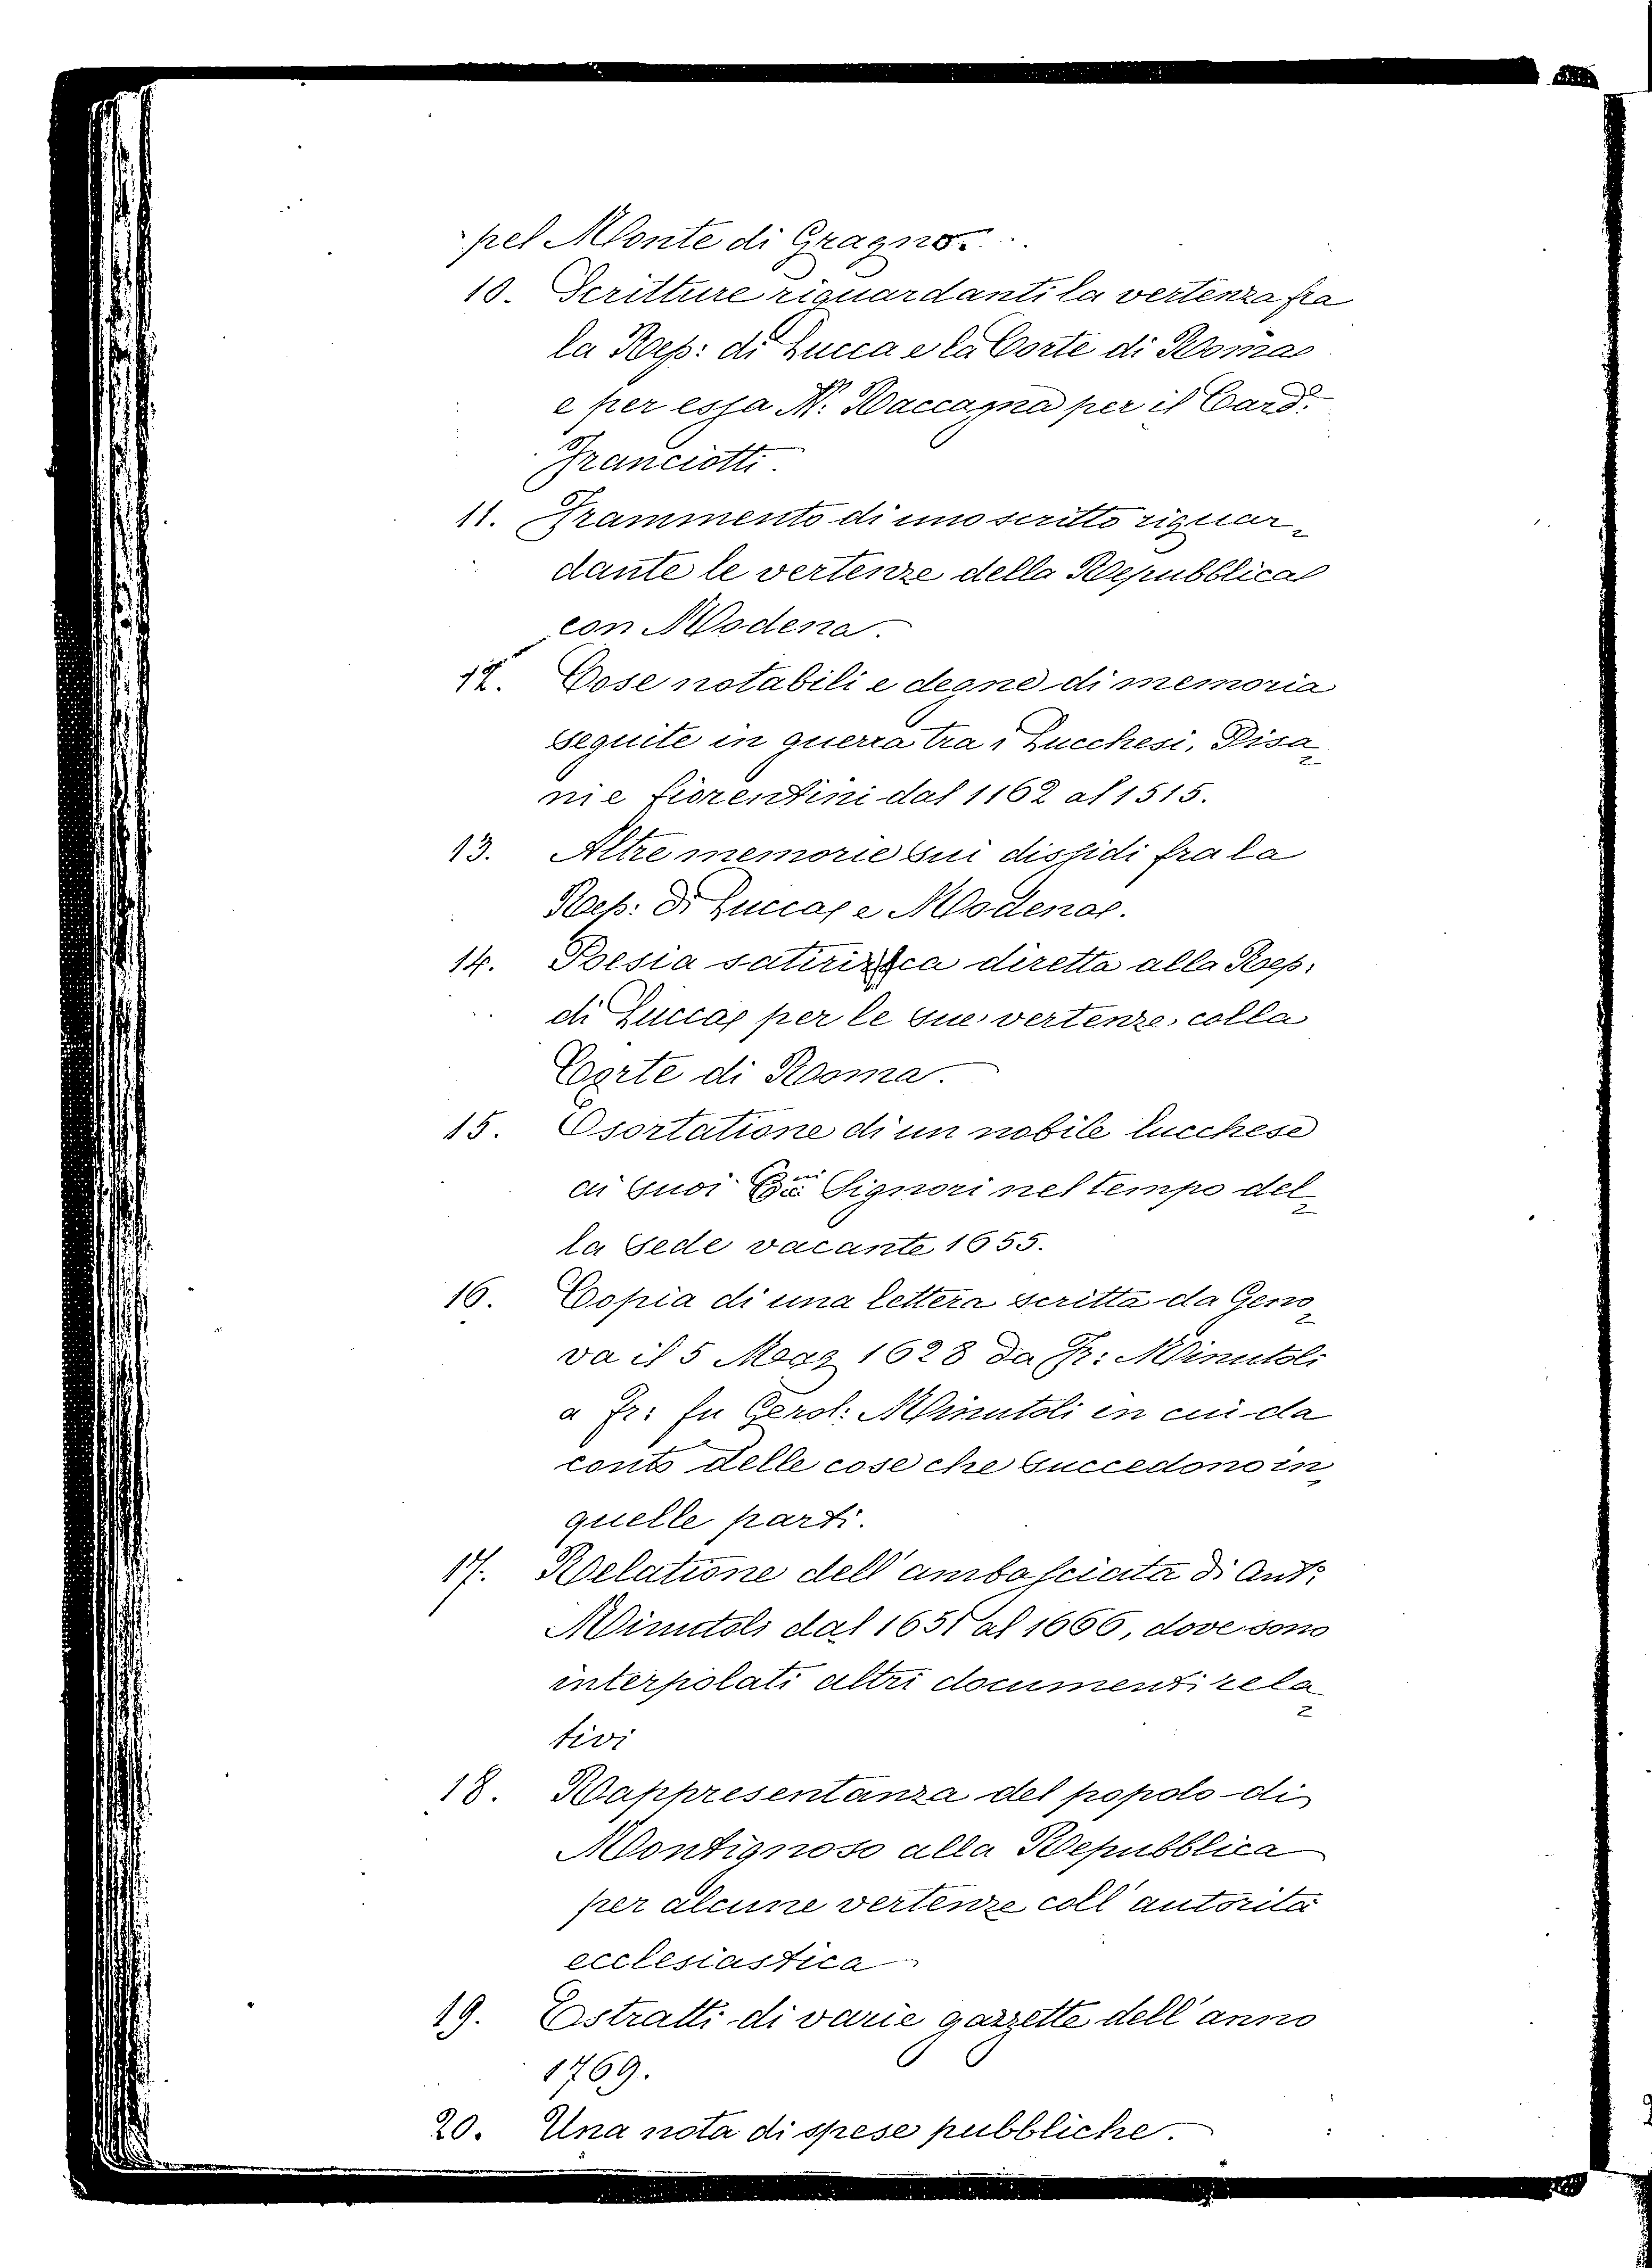 pel Monte di Gragno.
10. Scritture riguardanti la vertenza fra
la Rep: di Lucca e la Corte di Roma
e per essa M. Raccagna per il Card.
Franciotti.
11. Frammento di uno scritto riguar-
dante le vertenze della Repubblica
con Modena.
12. Cose notabili e degne di memoria
seguite in guerra tra i Lucchesi, Pisa-
ni e fiorentini dal 1162 al 1515.
13. Altre memorie sui dissidi fra la
Rep: di Lucca e Modena.
14. Poesia satirica diretta alla Rep:
di Lucca per le sue vertenze colla
Corte di Roma.
15. Esortatione di un nobile lucchese
ai suoi Signori nel tempo del-
la Sede vacante 1655.
16. Copia di una lettera scritta da Geno-
va il 5 Marz 1628 da Fr: Minutoli
a Fr: fu Gerol: Minutoli in cui da
conto delle cose che succedono in
quelle parti.
17. Relatione dell'ambasciata di Ant:
Minutoli dal 1651 al 1666, dove sono
interpolati altri documenti rela-
tivi
18. Rappresentanza del popolo di
Montignoso alla Repubblica
per alcune vertenze coll'autorità
ecclesiastica
19. Estratti di varie gazzette dell'anno
1769.
20. Una nota di spese pubbliche.